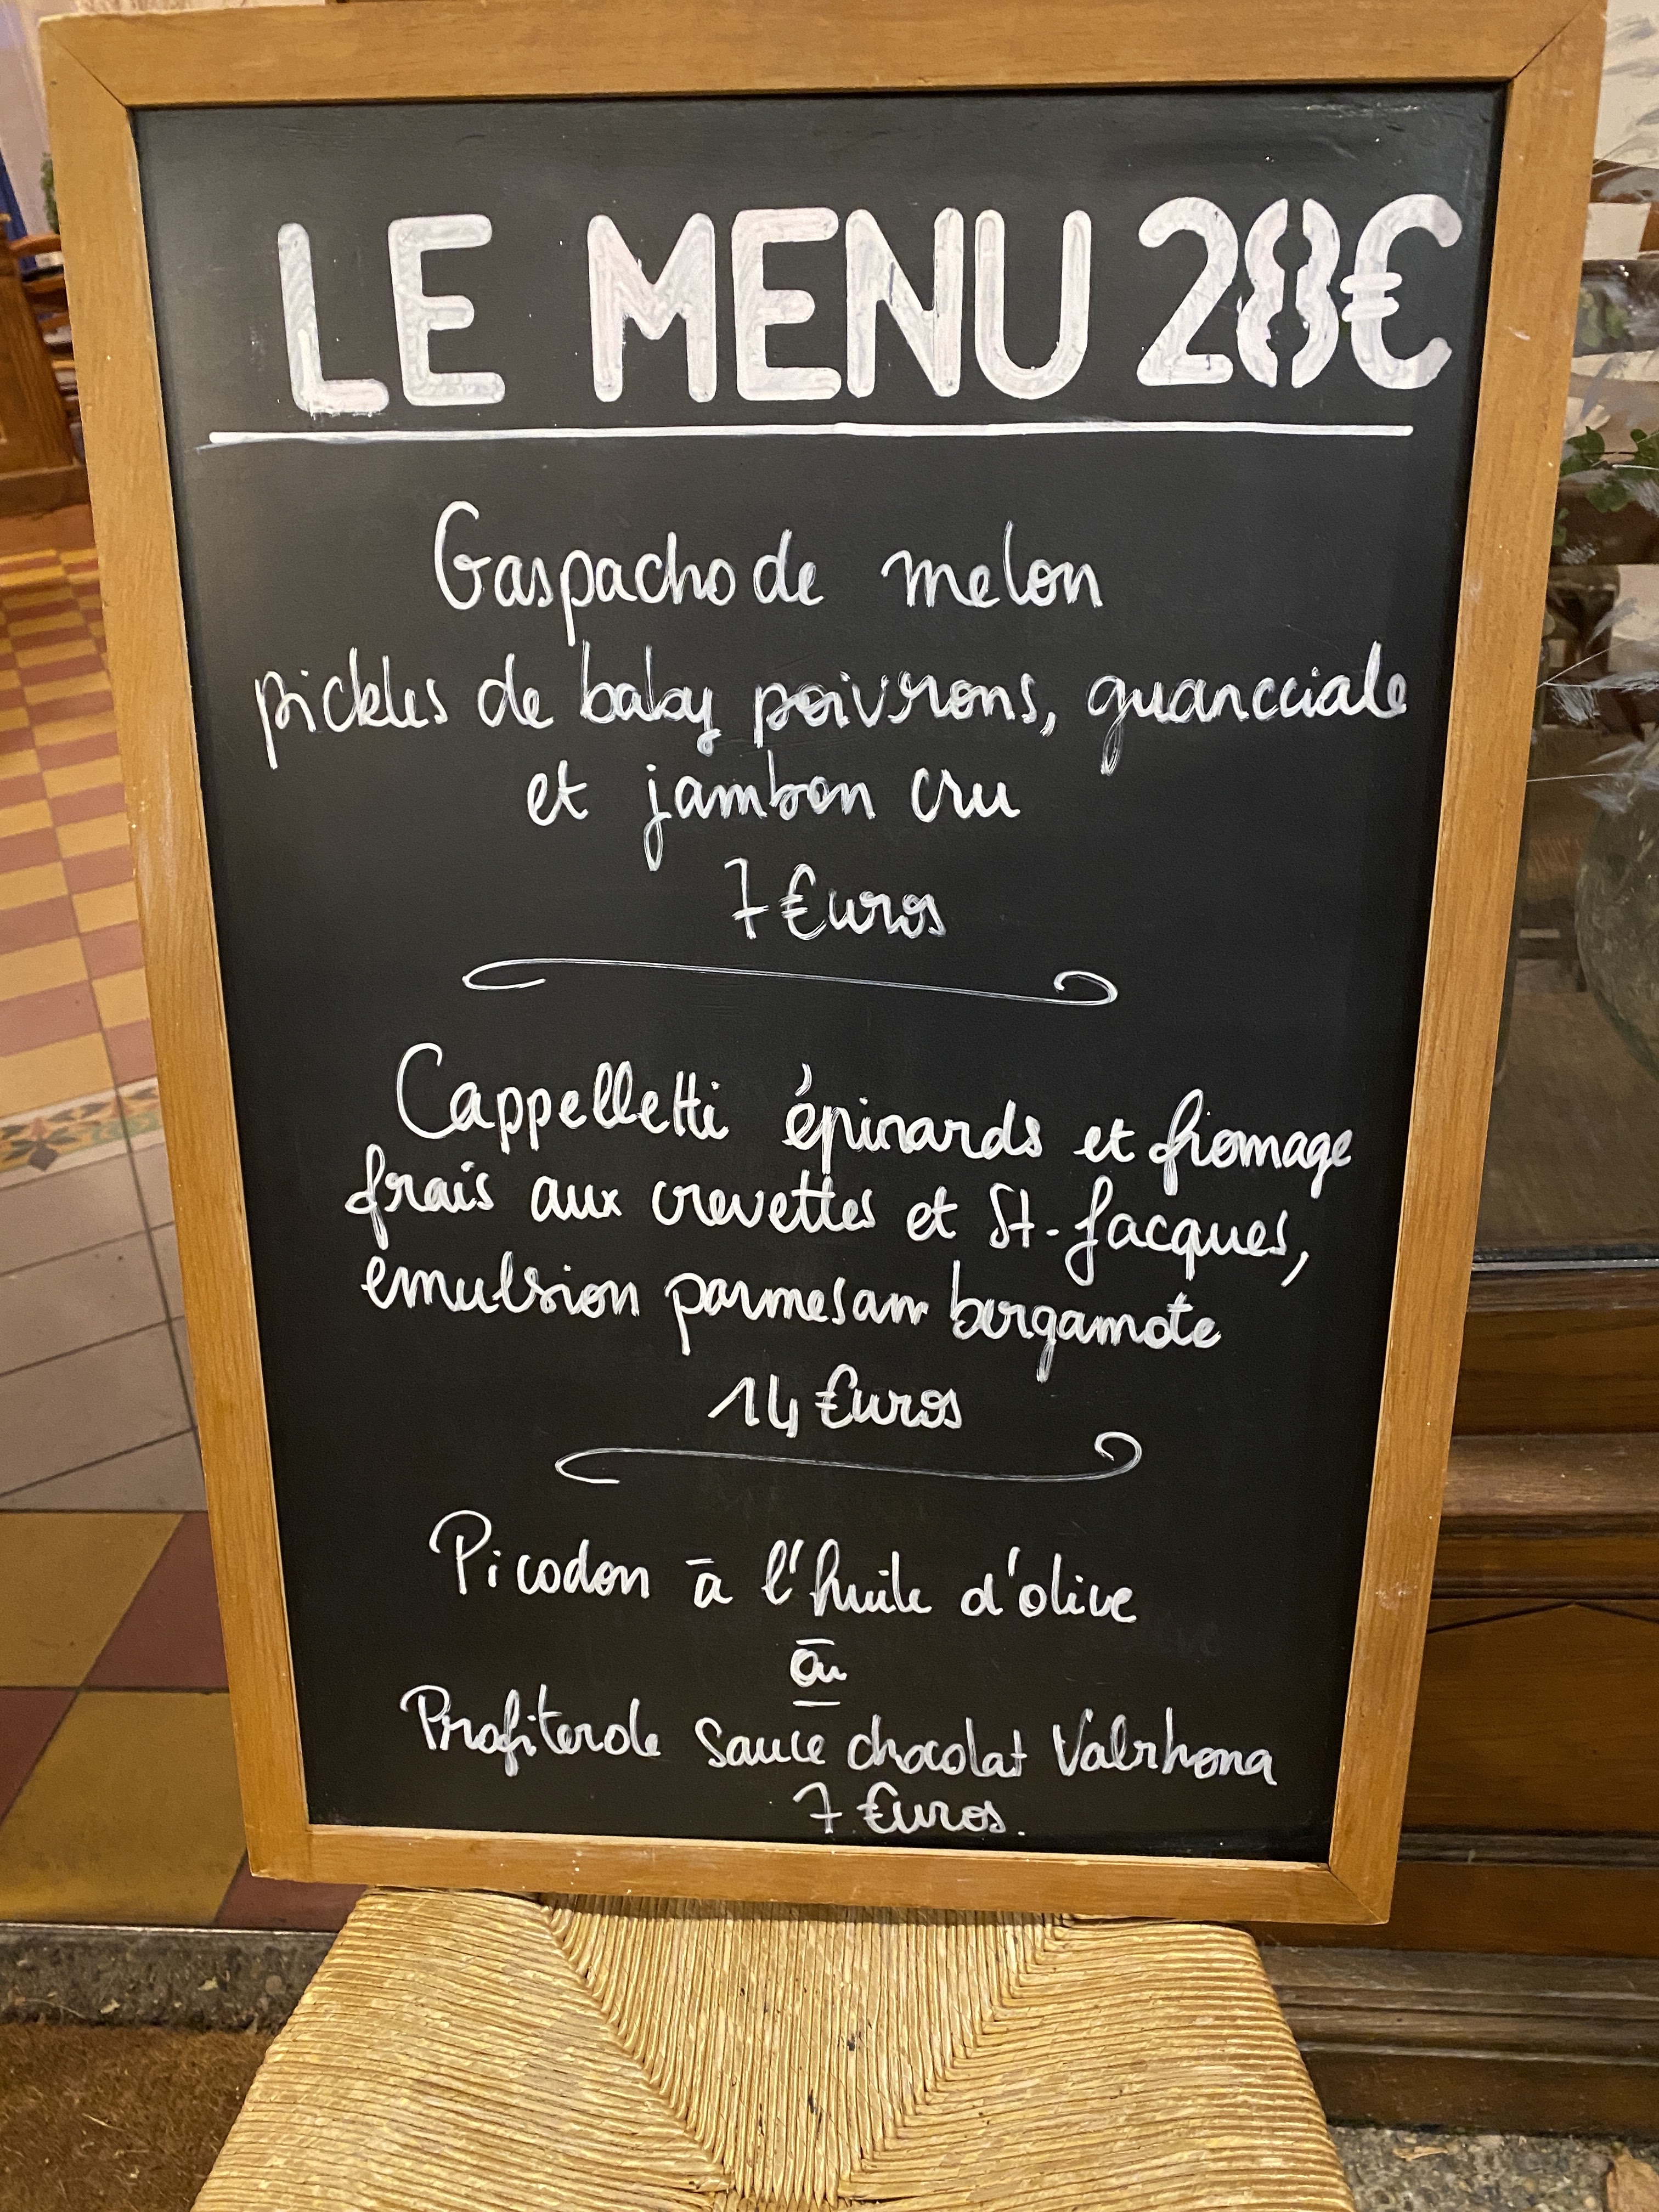 LE MENU 28€
Gaspacho de melon
pickles de baby poivrons, guancciale
et jambon cru
7 €uros
Cappelletti épinards et fromage
frais aux crevettes et St-Jacques,
emulsion parmesan bergamote
14 €uros
Picodon à l'huile d'olive
ou
Profiterole Sauce chocolat Valrhona
7 €uros.